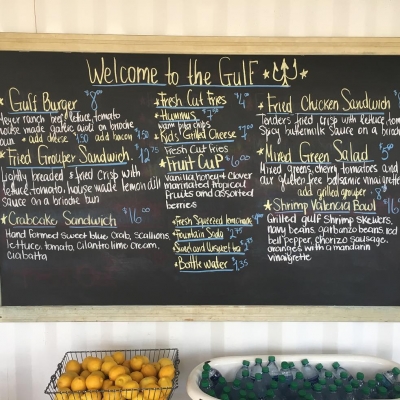 Welcome to the Gulf
Gulf Burger
Meyer ranch beef, lettuce, tomato
house made garlic aioli on brioche
bun add cheese 1.50 add bacon 1.50
Fried Grouper Sandwich $12.75
Lightly breaded & fried crisp with
lettuce, tomato, house made lemon dill
sauce on a brioche bun
Crabcake Sandwich $16.00
Hand formed sweet blue crab, scallions,
lettuce, tomato, cilantro lime cream,
ciabatta
Fresh Cut Fries $4.00
Hummus
warm pita chips
Kids Grilled Cheese
Fresh Cut fries
Fruit Cup $6.00
Vanilla, honey & clover
marinated tropical
fruits and assorted
berries
Fresh Squeezed Lemonade
Fountain Soda
Sweet and Unsweet tea
Bottle water
Fried Chicken Sandwich
Tenders fried crisp with lettuce, tomato
Spicy buttermilk sauce on a brioche
Mixed Green Salad
Mixed greens, cherry tomatoes and
our gluten free balsamic vinaigrette
add grilled grouper
Shrimp Valencia Bowl $16
Grilled gulf shrimp skewers,
navy beans, garbanzo beans red
bell pepper, chorizo sausage,
oranges with a mandarin
vinaigrette